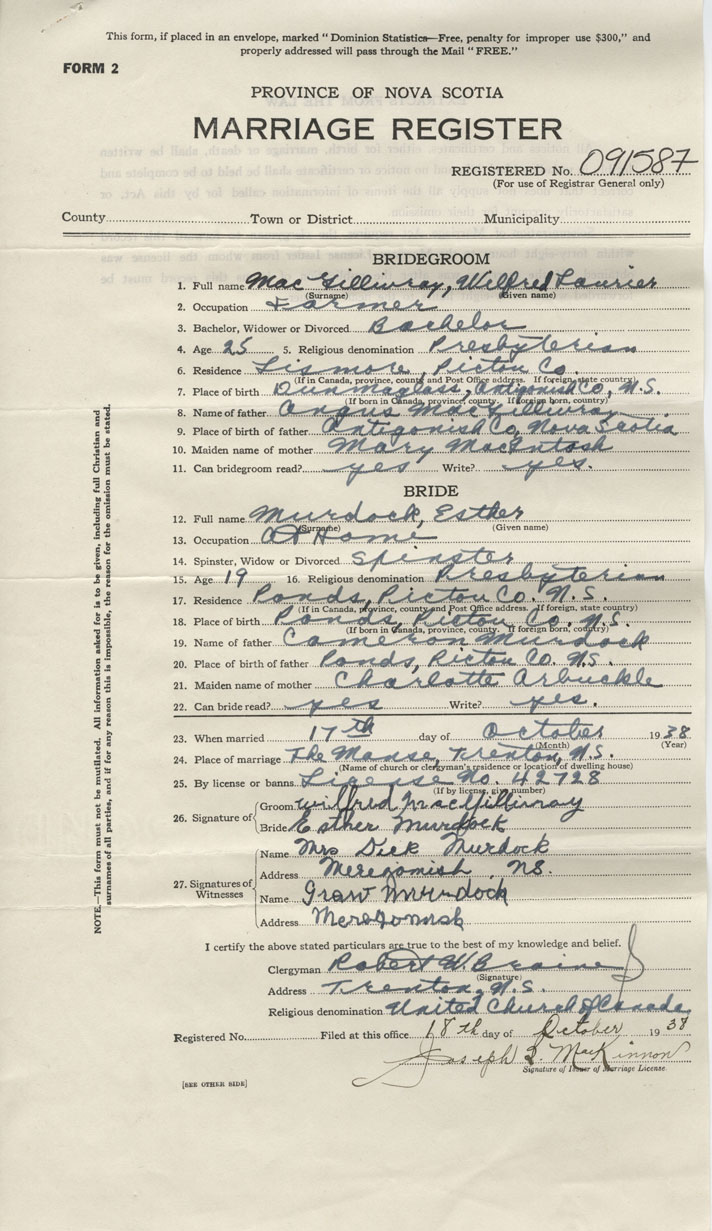 This form, if placed in an envelope, marked "Dominion Statistics—Free, penalty for improper use $300," and
properly addressed will pass through the Mail "FREE."
FORM 2
PROVINCE OF NOVA SCOTIA
MARRIAGE REGISTER
REGISTERED No. 091587
(For use of Registrar General only)
County Town or District Municipality
BRIDEGROOM
1. Full name MacGillivray, Wilfred Laurier
(Surname) (Given name)
2. Occupation Farmer
3. Bachelor, Widower or Divorced Bachelor
4. Age 25 5. Religious denomination Presbyterian
6. Residence Lismore, Pictou Co.
(If in Canada, province, county and Post Office address. If foreign, state country)
7. Place of birth Dunmaglass, Antigonish Co, N.S.
(If born in Canada, province, county. If foreign born, country)
8. Name of father Angus MacGillivray
9. Place of birth of father Antigonish Co, Nova Scotia
10. Maiden name of mother Mary MacIntosh
11. Can bridegroom read? yes Write? yes.
BRIDE
12. Full name Murdock, Esther
(Surname) (Given name)
13. Occupation At Home
14. Spinster, Widow or Divorced Spinster
15. Age 19 16. Religious denomination Presbyterian
17. Residence Ponds, Pictou Co. N.S.
(If in Canada, province, county and Post Office address. If foreign, state country)
18. Place of birth Ponds, Pictou Co. N.S.
(If born in Canada, province, county. If foreign born, country)
19. Name of father Cameron Murdock
20. Place of birth of father Ponds, Pictou Co. N.S.
21. Maiden name of mother Charlotte Arbuckle
22. Can bride read? yes Write? yes.
23. When married 17th day of October 1938
(Month) (Year)
24. Place of marriage The Manse, Trenton, N.S.
(Name of church or clergyman's residence or location of dwelling house)
25. By license or banns License No. 42728
(If by license, give number)
26. Signature of
Groom Wilfred MacGillivray
Bride Esther Murdock
27. Signatures of Witnesses
Name Mrs Dick Murdock
Address Merigomish, NS.
Name Murdock
Address
I certify the above stated particulars are true to the best of my knowledge and belief.
Clergyman Robert W. Braine
(Signature)
Address Trenton, N.S.
Religious denomination United Church of Canada
Registered No. Filed at this office 18th day of October 1938
Joseph MacKinnon
Signature of Issuer of Marriage License.
[SEE OTHER SIDE]
NOTE.—This form must not be mutilated. All information asked for is to be given, including full Christian and
surnames of all parties, and if for any reason this is impossible, the reason for the omission must be stated.